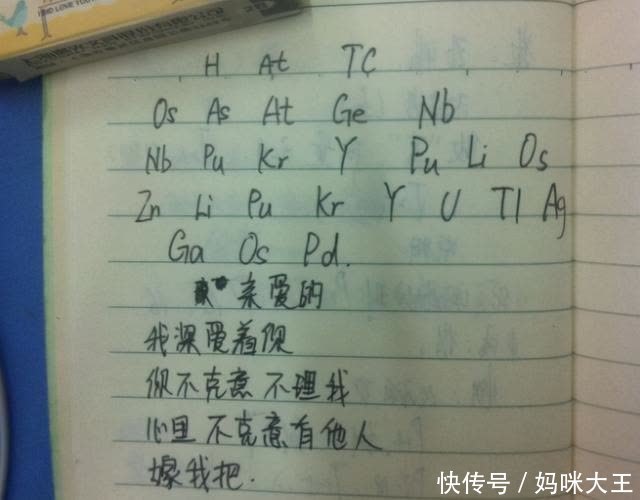 FIND LOVE YOU
H At TC
Os As At Ge Nb
Nb Pu Kr Y Pu Li Os
Zn Li Pu Kr Y U Tl Ag
Ga Os Pd.
亲爱的
我深爱着你
你不克意不理我
心里不克意有他人
嫁我把.
快传号/妈咪大王